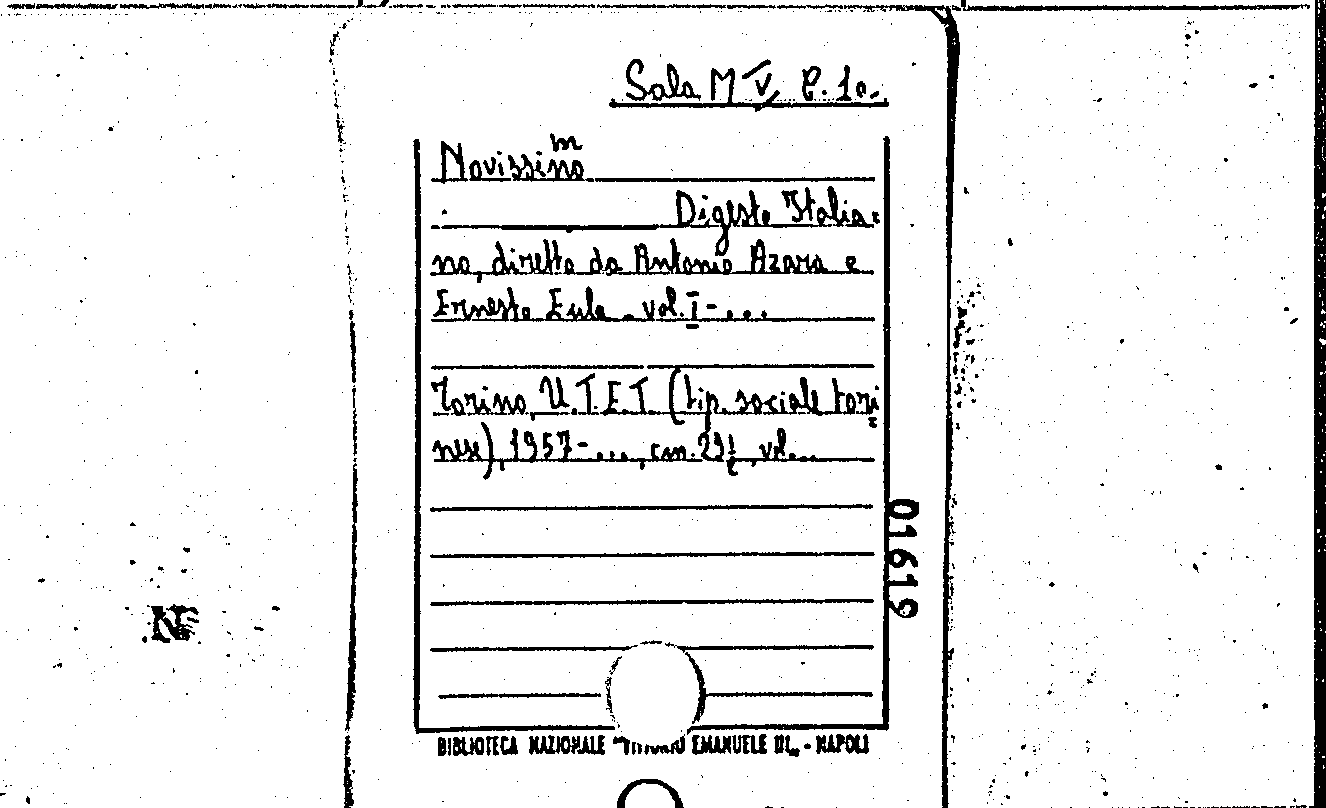 Sala M V C. 10.
Novissimo
Digesto Italia=
no, diretto da Antonio Azara e
Ernesto Eula. vol. I-...
Torino, U.T.E.T. (tip. sociale tori
nese), 1957-..., cm. 29½, vol...
01619
BIBLIOTECA NAZIONALE "VITTORIO EMANUELE III„ - NAPOLI